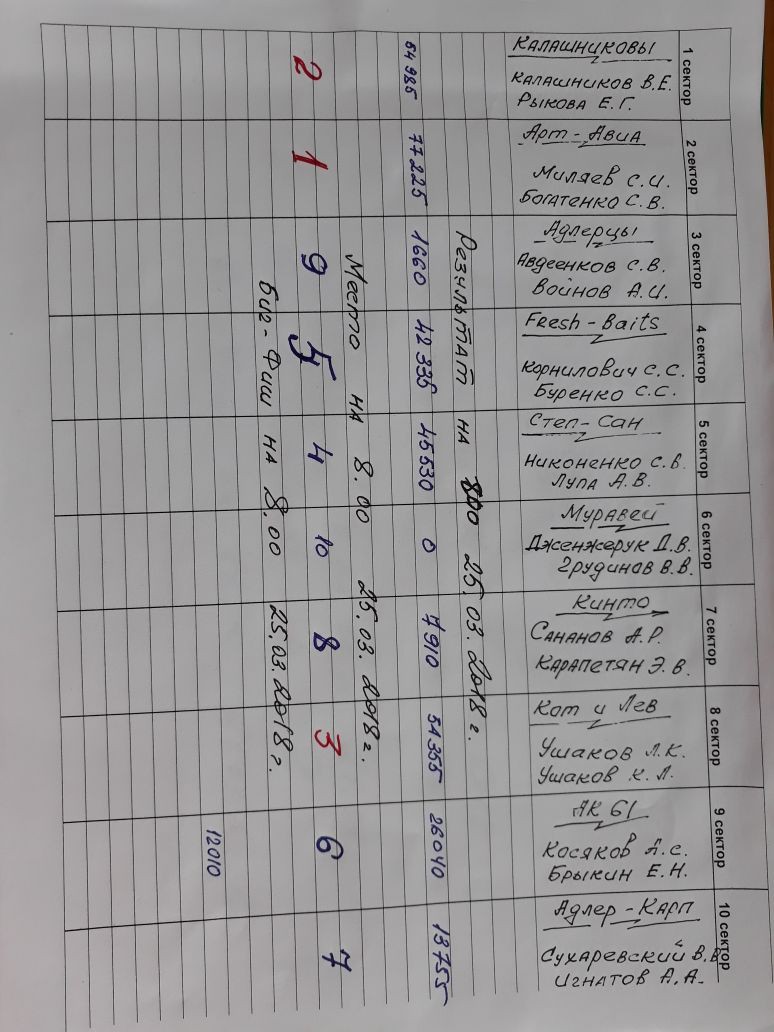 1 сектор
КАЛАШНИКОВЫ
КАЛАШНИКОВ В.Е.
РЫКОВА Е.Г.
2 сектор
АРТ-АВИА
МИЛЯЕВ С.И.
БОГАТЕНКО С.В.
3 сектор
АДЛЕРЦЫ
АВДЕЕНКОВ С.В.
ВОЙНОВ А.И.
4 сектор
FResh-Baits
КОРНИЛОВИЧ С.С.
БУРЕНКО С.С.
5 сектор
СТЕП-САН
НИКОНЕНКО С.В.
ЛУПА А.В.
6 сектор
МУРАВЕЙ
ДЖЕНЖЕРУК Д.В.
ГРУДИНОВ В.В.
7 сектор
КИНТО
САНАНОВ А.Р.
КАРАПЕТЯН Э.В.
8 сектор
КОТ и ЛЕВ
УШАКОВ Л.К.
УШАКОВ К.Л.
9 сектор
АК 61
КОСЯКОВ А.С.
БРЫКИН Е.Н.
10 сектор
АДЛЕР-КАРП
СУХАРЕВСКИЙ В.В
ИГНАТОВ А.А.
Результат на 800 25.03.2018 г.
64985 77225 1660 42335 45530 0 7910 54355 26040 13755
Место на 8.00 25.03.2018 г.
2 1 9 5 4 10 8 3 6 7
Биг-Фиш на 8.00 25.03.2018 г.
12010